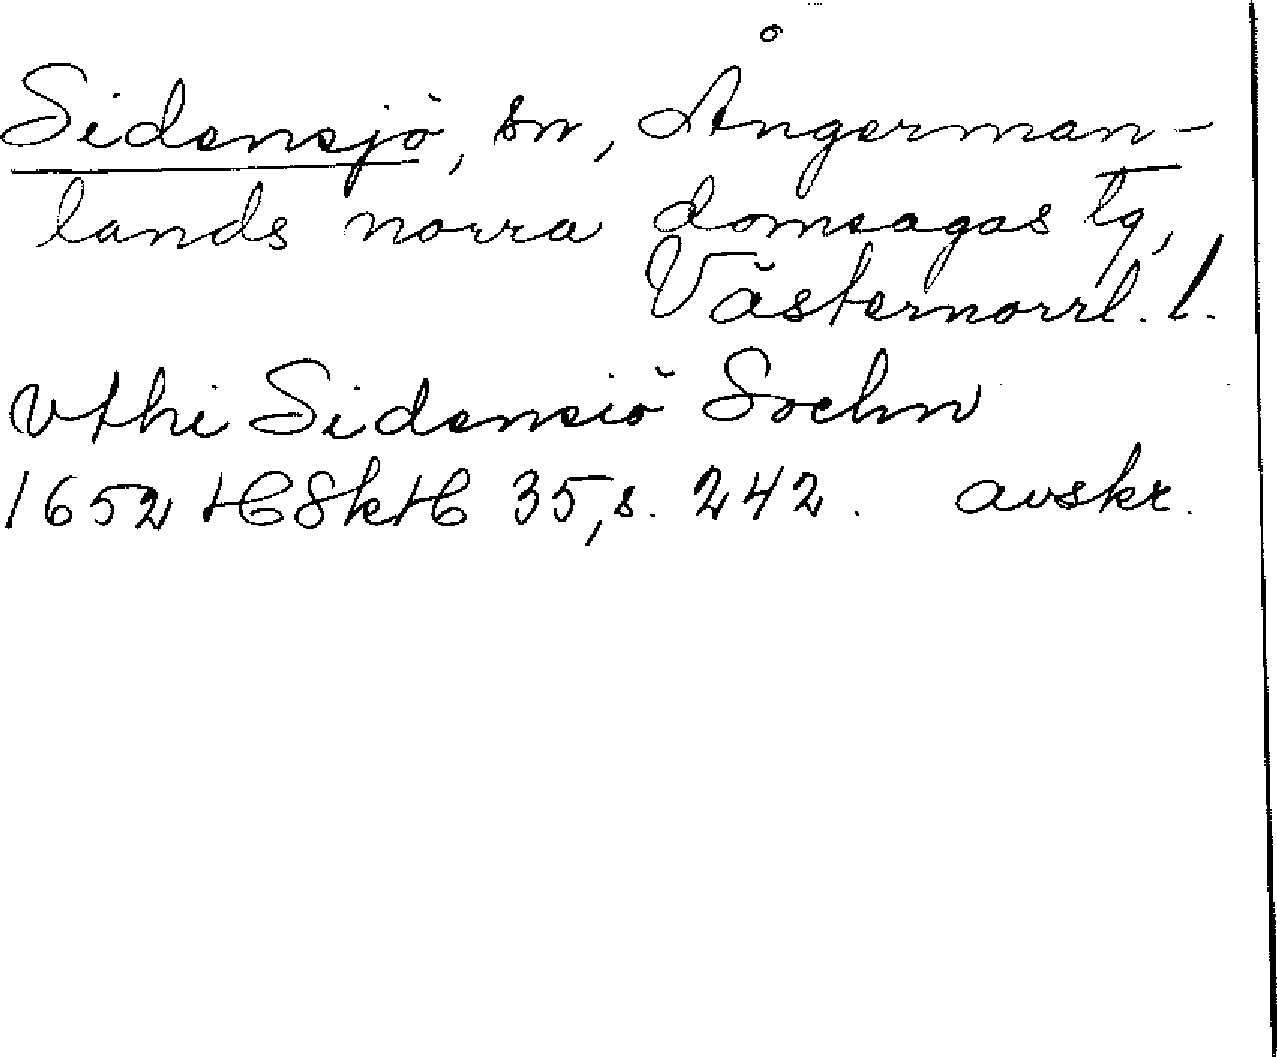 Sidensjö, sn, Ångerman-
lands norra domsagas tg,
Västernorrl. l.
vthi Sidensiö Sochn
1652 HSkH 35, s. 242. avskr.